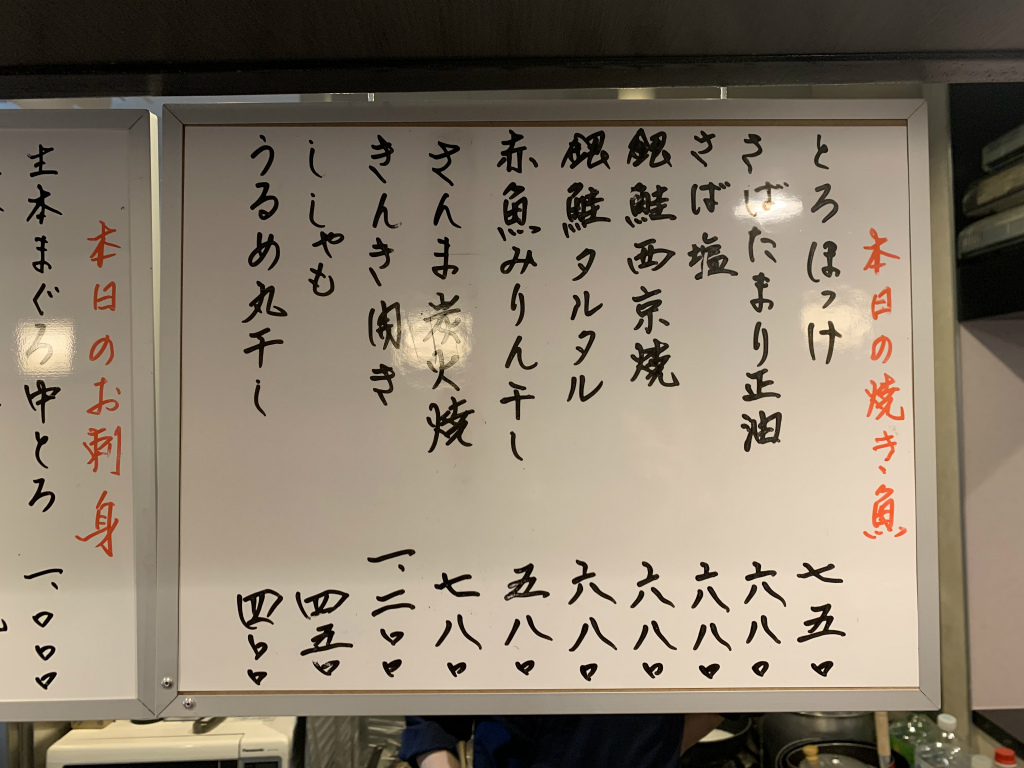 本日の焼き魚
とろほっけ 七五〇
さばたまり正油 六八〇
さば塩 六八〇
銀鮭西京焼 六八〇
銀鮭タルタル 六八〇
赤魚みりん干し 五八〇
さんま炭火焼 七八〇
きんき開き 一、二〇〇
ししゃも 四五〇
うるめ丸干し 四〇〇
本日のお刺身
生本まぐろ中とろ 一、〇〇〇
Panasonic